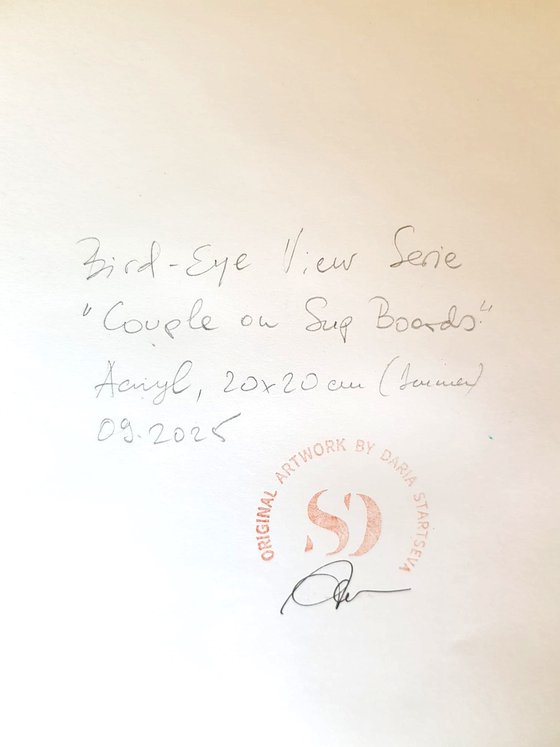 Bird-Eye View Serie
"Couple on Sup Boards"
Acryl, 20x20cm
09.2025
ORIGINAL ARTWORK BY DARIA STARTSEVA
SD